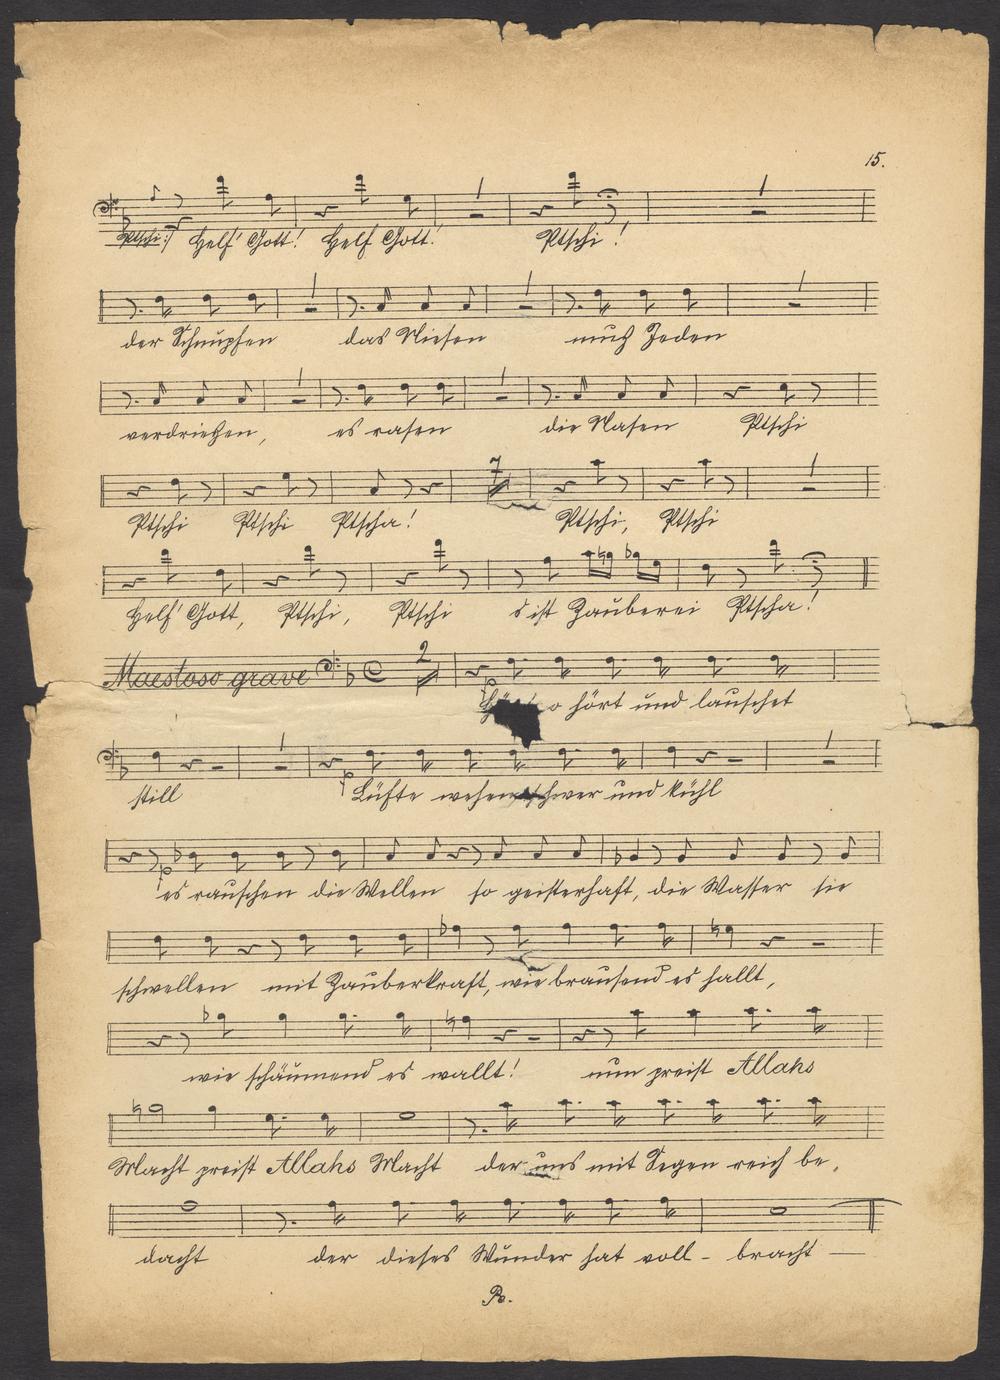 15.
Ptschi! Helf' Gott! Helf Gott! Ptschi!
der Schnupfen das Niesen muß Jeden
verdrießen, es rasen die Nasen Ptschi
Ptschi Ptschi Ptscha! 7 Ptschi, Ptschi
Helf' Gott, Ptschi, Ptschi s'ist Zauberei Ptscha!
Maestoso grave 2
o hört und lauschet
still Lüfte wehen schwer und kühl
es rauschen die Wellen so geisterhaft, die Wasser sie
schwellen mit Zauberkraft, wie brausend es hallt,
wie schäumend es wallt! nun preist Allahs
Macht preist Allahs Macht der uns mit Segen reich be,
dacht der dieses Wunder hat voll - bracht —